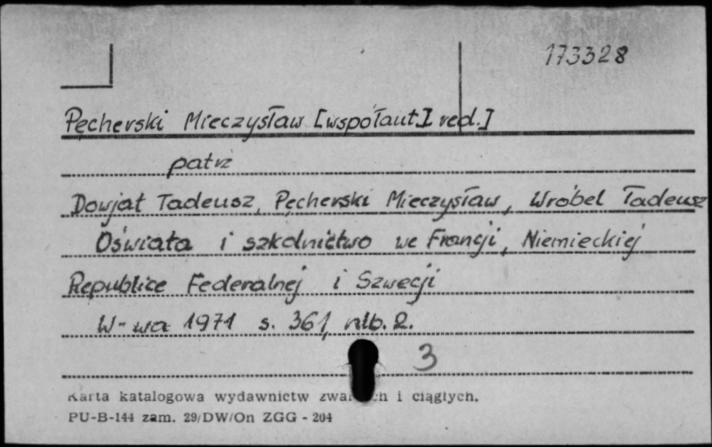 173328
Pęcherski Mieczysław [współaut.] red.]
patrz
Dowjat Tadeusz, Pęcherski Mieczysław, Wróbel Tadeusz
Oświata i szkolnictwo we Francji, Niemieckiej
Republice Federalnej i Szwecji
W-wa 1971 s. 361, nlb. 2.
3
Karta katalogowa wydawnictw i ciągłych.
PU-B-144 zam. 29/DW/On ZGG - 204